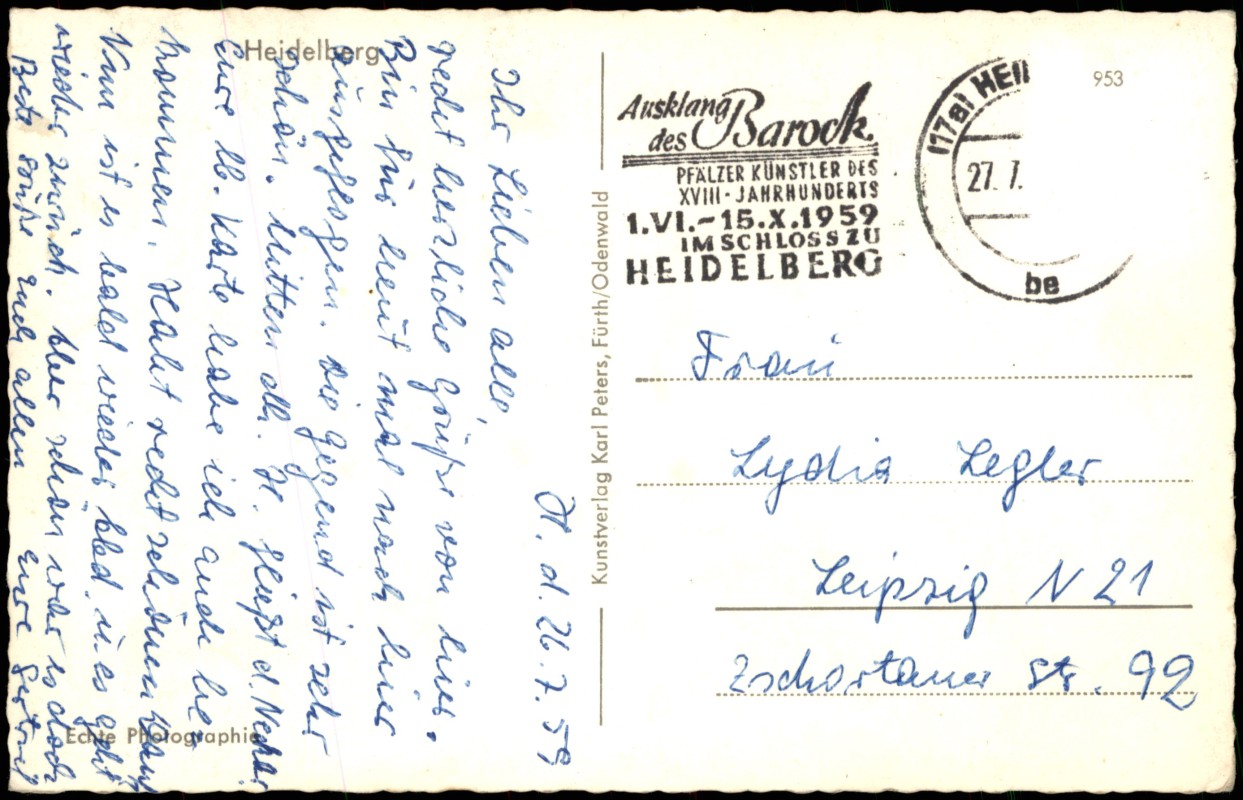 Heidelberg
H. d. 26.7.59
Ihr Lieben all,
recht herzliche Grüße von hier.
Bin für heut mal nach hier
ausgeflogen. Die Gegend ist sehr
schön. Mitten dch. H. fließt d. Neckar
Eure lb. Karte habe ich auch be-
kommen. Habt recht schönen Dank
Nun ist es bald wieder u. es geht
wieder zurück. Aber schön war es doch
Beste Grüße Euch allen Eure Gertrud
Echte Photographie
Kunstverlag Karl Peters, Fürth/Odenwald
Ausklang
des Barock
PFÄLZER KÜNSTLER DES
XVIII-JAHRHUNDERTS
1.VI.-15.X.1959
IM SCHLOSS ZU
HEIDELBERG
(17a) HEI
27.7.
be
953
Frau
Lydia Legler
Leipzig N 21
Zschortauer Str. 92